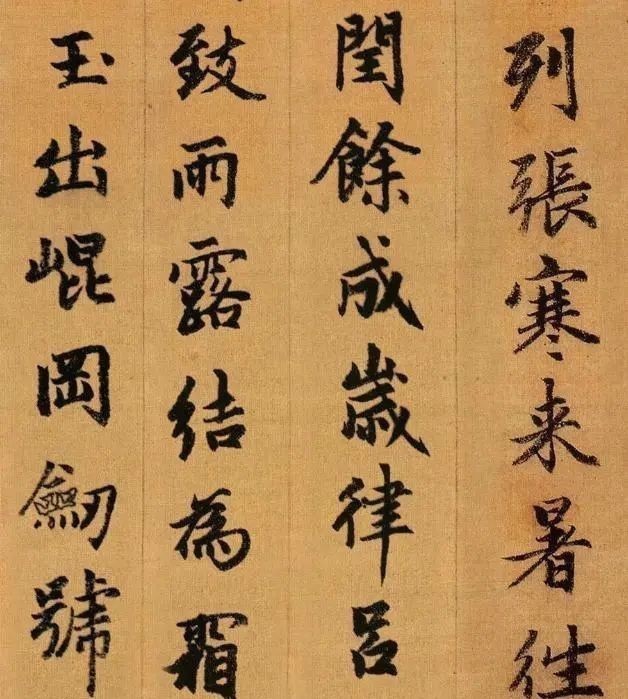 列張寒来暑往
閏餘成歲律吕
致雨露結為霜
玉出崐岡劒號